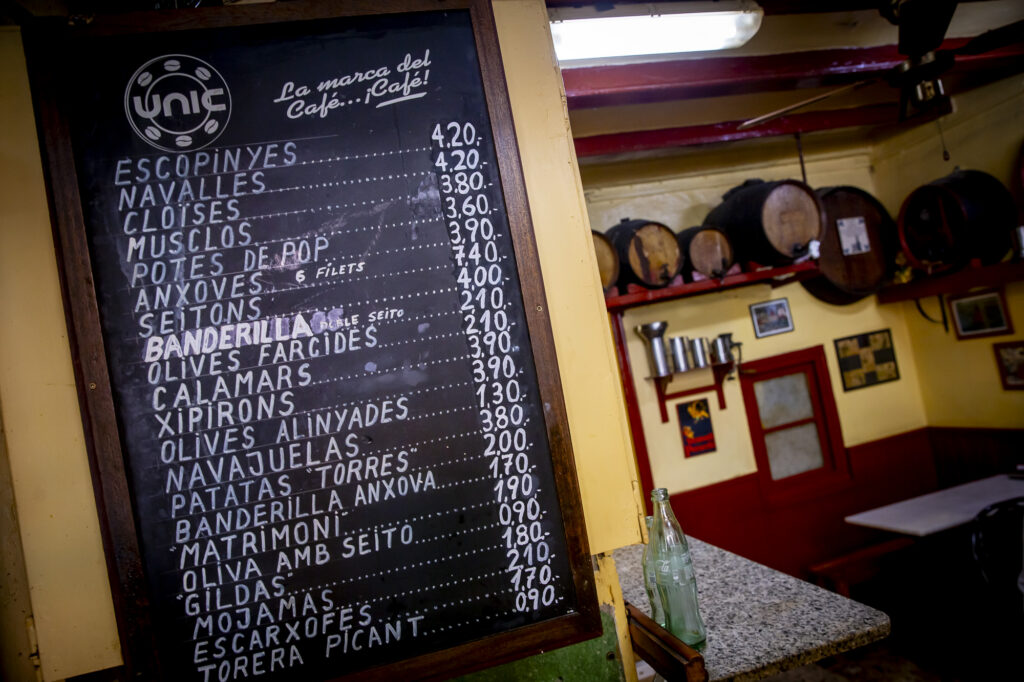 UNIC
La marca del
Café...¡Café!
ESCOPINYES 4,20.-
NAVALLES 4,20.-
CLOÏSES 3,80.-
MUSCLOS 3,60.-
POTES DE POP 3,90.-
ANXOVES 6 FILETS 7,40.-
SEITONS 4,00.-
BANDERILLA DOBLE SEITO 2,10.-
OLIVES FARCIDES 2,10.-
CALAMARS 3,90.-
XIPIRONS 3,90.-
OLIVES ALINYADES 1,30.-
NAVAJUELAS 3,80.-
PATATAS "TORRES" 2,00.-
BANDERILLA ANXOVA 1,70.-
"MATRIMONI 1,90.-
OLIVA AMB SEITÓ 0,90.-
"GILDAS" 1,80.-
MOJAMAS 2,10.-
ESCARXOFES 1,70.-
TORERA PICANT 0,90.-